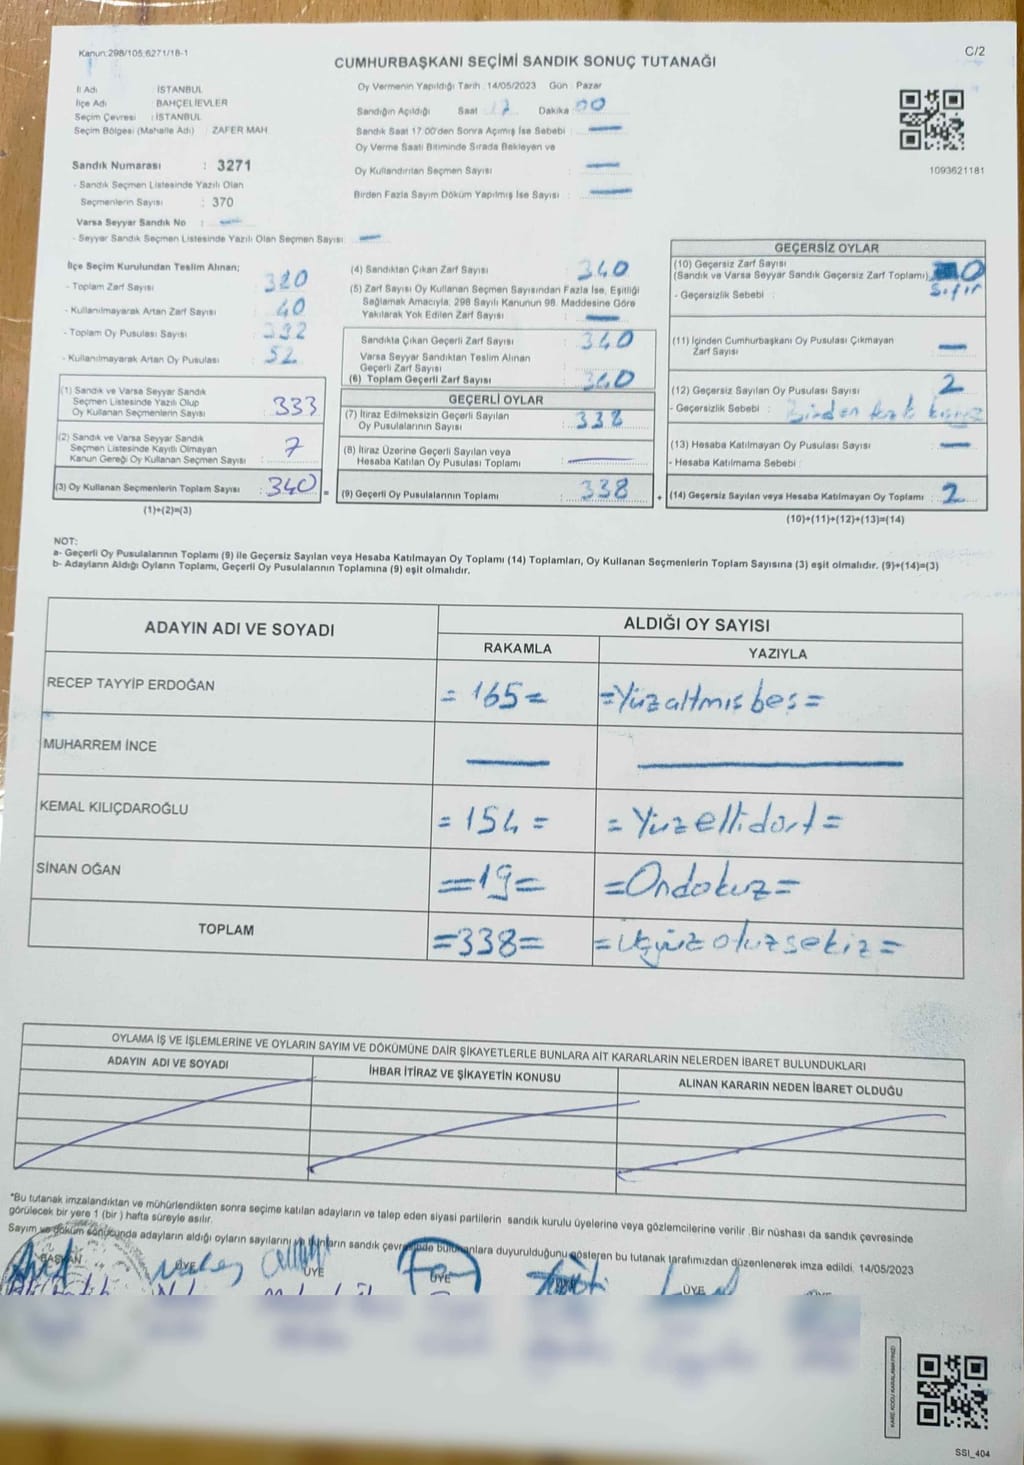 Kanun:298/105,6271/18-1
C/2
CUMHURBAŞKANI SEÇİMİ SANDIK SONUÇ TUTANAĞI
İl Adı : İSTANBUL
İlçe Adı : BAHÇELİEVLER
Seçim Çevresi : İSTANBUL
Seçim Bölgesi (Mahalle Adı) : ZAFER MAH
Sandık Numarası : 3271
- Sandık Seçmen Listesinde Yazılı Olan
Seçmenlerin Sayısı : 370
Varsa Seyyar Sandık No : —
- Seyyar Sandık Seçmen Listesinde Yazılı Olan Seçmen Sayısı: —
Oy Vermenin Yapıldığı Tarih : 14/05/2023 Gün : Pazar
Sandığın Açıldığı Saat : 17 Dakika : 00
Sandık Saat 17.00'den Sonra Açılmış İse Sebebi : —
Oy Verme Saati Bitiminde Sırada Bekleyen ve
Oy Kullandırılan Seçmen Sayısı : —
Birden Fazla Sayım Döküm Yapılmış İse Sayısı : —
1093621181
İlçe Seçim Kurulundan Teslim Alınan;
- Toplam Zarf Sayısı : 380
- Kullanılmayarak Artan Zarf Sayısı : 40
- Toplam Oy Pusulası Sayısı : 392
- Kullanılmayarak Artan Oy Pusulası : 52
(1) Sandık ve Varsa Seyyar Sandık
Seçmen Listesinde Yazılı Olup
Oy Kullanan Seçmenlerin Sayısı : 333
(2) Sandık ve Varsa Seyyar Sandık
Seçmen Listesinde Kayıtlı Olmayan
Kanun Gereği Oy Kullanan Seçmen Sayısı : 7
(3) Oy Kullanan Seçmenlerin Toplam Sayısı : 340 =
(1)+(2)=(3)
(4) Sandıktan Çıkan Zarf Sayısı : 340
(5) Zarf Sayısı Oy Kullanan Seçmen Sayısından Fazla İse, Eşitliği
Sağlamak Amacıyla, 298 Sayılı Kanunun 98. Maddesine Göre
Yakılarak Yok Edilen Zarf Sayısı : —
Sandıkta Çıkan Geçerli Zarf Sayısı : 340
Varsa Seyyar Sandıktan Teslim Alınan
Geçerli Zarf Sayısı :
(6) Toplam Geçerli Zarf Sayısı : 340
GEÇERLİ OYLAR
(7) İtiraz Edilmeksizin Geçerli Sayılan
Oy Pusulalarının Sayısı : 338
(8) İtiraz Üzerine Geçerli Sayılan veya
Hesaba Katılan Oy Pusulası Toplamı : —
(9) Geçerli Oy Pusulalarının Toplamı : 338 +
GEÇERSİZ OYLAR
(10) Geçersiz Zarf Sayısı
(Sandık ve Varsa Seyyar Sandık Geçersiz Zarf Toplamı) : 0
Sıfır
- Geçersizlik Sebebi :
(11) İçinden Cumhurbaşkanı Oy Pusulası Çıkmayan
Zarf Sayısı : —
(12) Geçersiz Sayılan Oy Pusulası Sayısı : 2
- Geçersizlik Sebebi : Birden
(13) Hesaba Katılmayan Oy Pusulası Sayısı : —
- Hesaba Katılmama Sebebi :
(14) Geçersiz Sayılan veya Hesaba Katılmayan Oy Toplamı : 2
(10)+(11)+(12)+(13)=(14)
NOT:
a- Geçerli Oy Pusulalarının Toplamı (9) ile Geçersiz Sayılan veya Hesaba Katılmayan Oy Toplamı (14) Toplamları, Oy Kullanan Seçmenlerin Toplam Sayısına (3) eşit olmalıdır. (9)+(14)=(3)
b- Adayların Aldığı Oyların Toplamı, Geçerli Oy Pusulalarının Toplamına (9) eşit olmalıdır.
ADAYIN ADI VE SOYADI
ALDIĞI OY SAYISI
RAKAMLA
YAZIYLA
RECEP TAYYİP ERDOĞAN =165= =Yüzaltmış beş=
MUHARREM İNCE — —
KEMAL KILIÇDAROĞLU =154= =Yüzellidört=
SİNAN OĞAN =19= =Ondokuz=
TOPLAM =338= =Üçyüz otuzsekiz=
OYLAMA İŞ VE İŞLEMLERİNE VE OYLARIN SAYIM VE DÖKÜMÜNE DAİR ŞİKAYETLERLE BUNLARA AİT KARARLARIN NELERDEN İBARET BULUNDUKLARI
ADAYIN ADI VE SOYADI
İHBAR İTİRAZ VE ŞİKAYETİN KONUSU
ALINAN KARARIN NEDEN İBARET OLDUĞU
*Bu tutanak imzalandıktan ve mühürlendikten sonra seçime katılan adayların ve talep eden siyasi partilerin sandık kurulu üyelerine veya gözlemcilerine verilir .Bir nüshası da sandık çevresinde
görülecek bir yere 1 (bir ) hafta süreyle asılır.
Sayım ve döküm sonucunda adayların aldığı oyların sayılarını ve bunların sandık çevresinde bulunanlara duyurulduğunu gösteren bu tutanak tarafımızdan düzenlenerek imza edildi. 14/05/2023
BAŞKAN ÜYE ÜYE ÜYE ÜYE ÜYE
SSİ_404